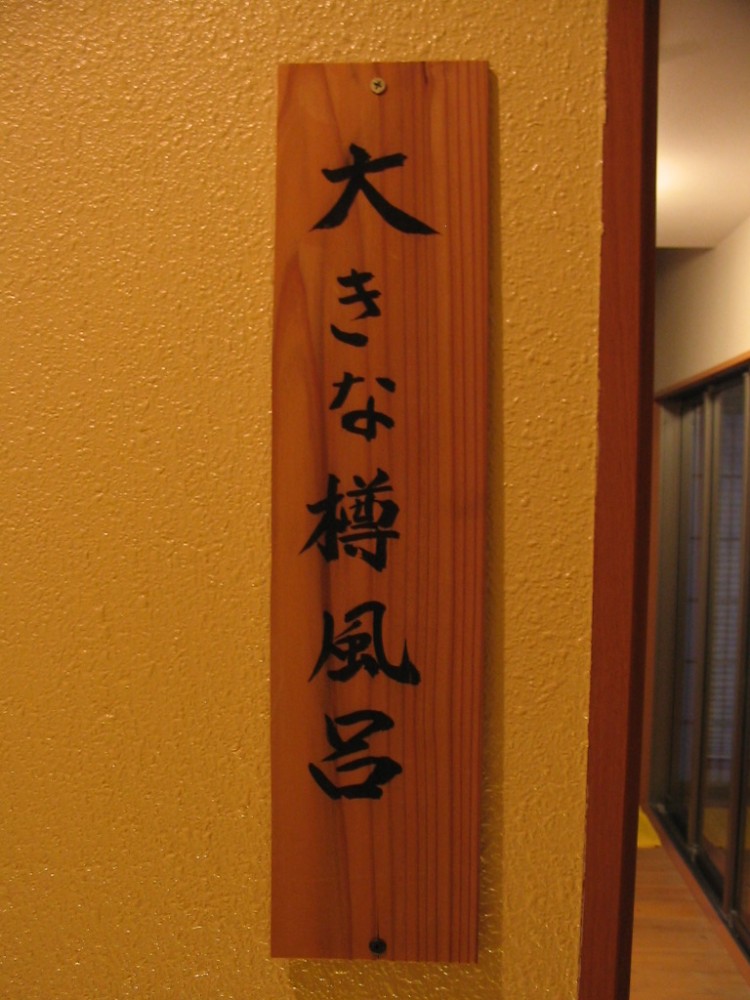 大きな樽風呂